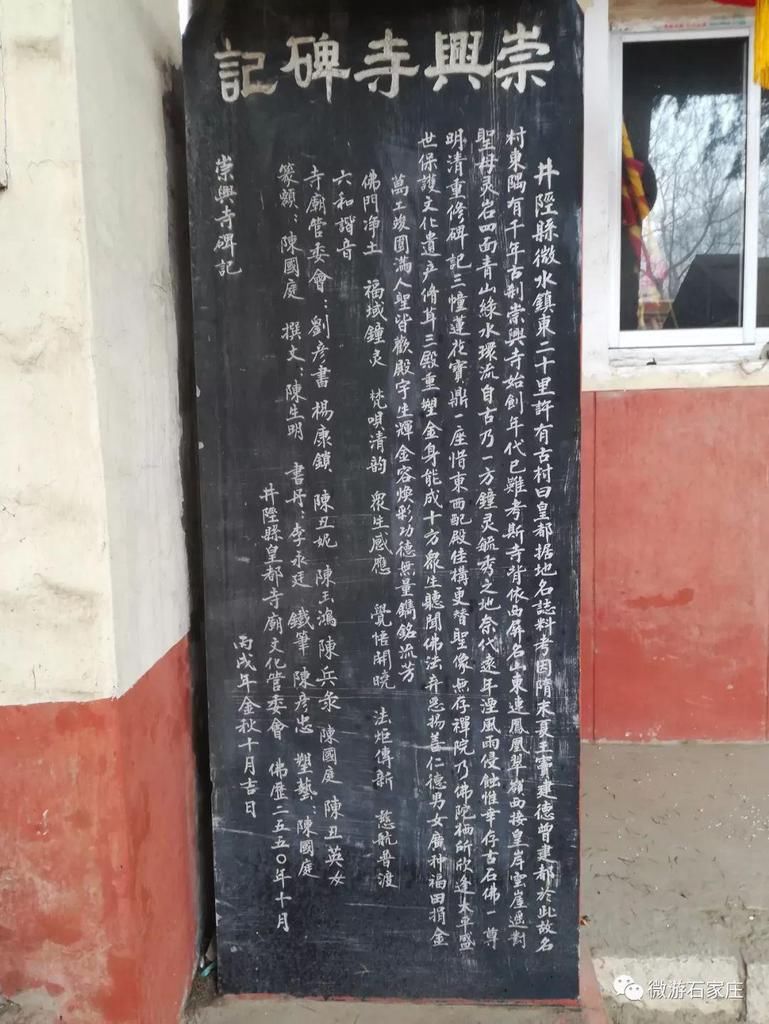 崇興寺碑記
井陘縣微水鎮東二十里許有古村曰皇都据地名誌料考因隋末夏王竇建德曾建都於此故名
村東隅有千年古刹崇興寺始創年代已難考斯寺背依西屏名山東連鳳凰翠嶺面接皇岸雲崖遥對
聖母灵岩四面青山綠水環流自古乃一方鐘灵毓秀之地奈代遠年湮風雨侵蝕惟幸存古石佛一尊
明清重修碑記三幢蓮花寶鼎一座惜東西配殿佳構更替聖像無存禪院乃佛陀栖所欣逢太平盛
世保護文化遺产脩葺三殿重塑金身能成十方衆生聽聞佛法弃惡揚善仁德男女廣种福田捐金
萬工竣圓滿人聖皆歡殿宇生輝金容煥彩功德無量鐫銘流芳
佛門净土 福域鐘灵 梵唄清韵 衆生感應 覺悟開曉 法炬傳新 慈航普渡
六和諧音
寺廟管委會：劉彦書 楊康鎖 陳丑妮 陳玉鴻 陳兵彔 陳國庭 陳丑英女
篆額：陳國庭 撰文：陳生明 書丹：李永廷 鐵筆 陳彦忠 塑藝：陳國庭
井陘縣皇都寺廟文化管委會 佛歷二五五〇年十月
崇興寺碑記
丙戌年金秋十月吉日
微游石家庄